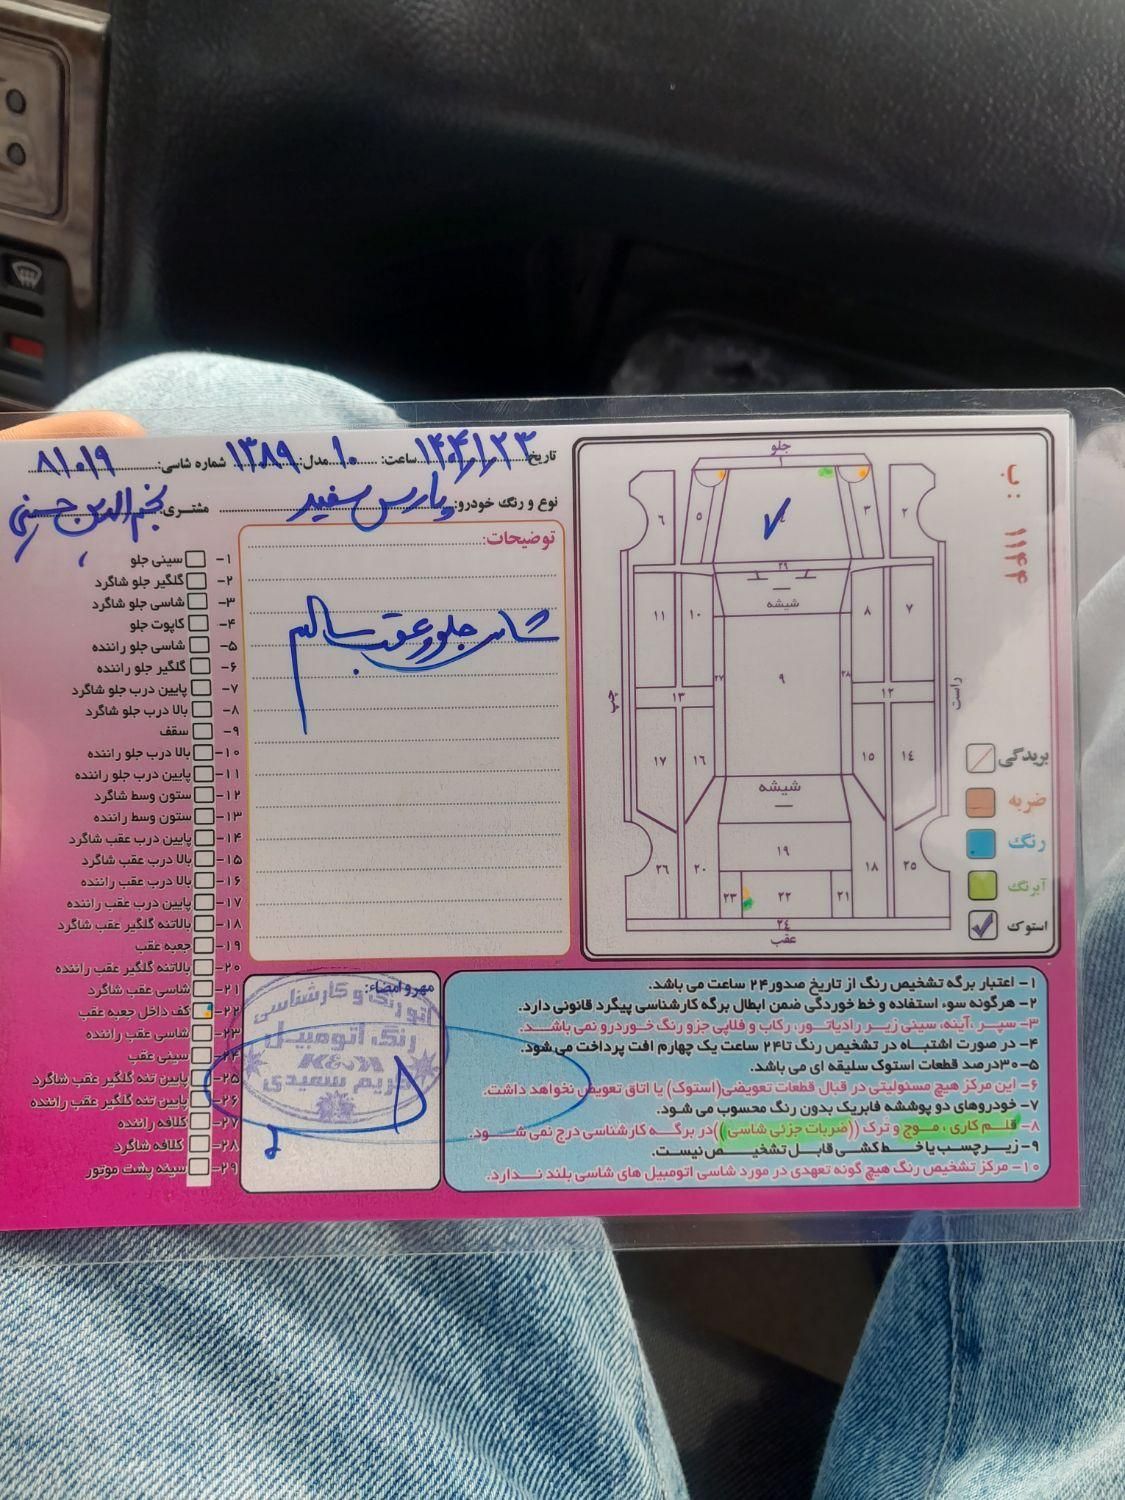 تاریخ: ۱۴۰۴/۱/۲۳ ساعت: ۱۰ مدل: ۱۳۸۹ شماره شاسی: ۸۱۰۱۹
نوع و رنگ خودرو: پارس سفید مشتری: نجم الدین حسنی
توضیحات:
شاسی جلو و عقب سالم
۱- سینی جلو
۲- گلگیر جلو شاگرد
۳- شاسی جلو شاگرد
۴- کاپوت جلو
۵- شاسی جلو راننده
۶- گلگیر جلو راننده
۷- پایین درب جلو شاگرد
۸- بالا درب جلو شاگرد
۹- سقف
۱۰- بالا درب جلو راننده
۱۱- پایین درب جلو راننده
۱۲- ستون وسط شاگرد
۱۳- ستون وسط راننده
۱۴- پایین درب عقب شاگرد
۱۵- بالا درب عقب شاگرد
۱۶- بالا درب عقب راننده
۱۷- پایین درب عقب راننده
۱۸- بالاتنه گلگیر عقب شاگرد
۱۹- جعبه عقب
۲۰- بالاتنه گلگیر عقب راننده
۲۱- شاسی عقب شاگرد
۲۲- کف داخل جعبه عقب
۲۳- شاسی عقب راننده
۲۴- سینی عقب
۲۵- پایین تنه گلگیر عقب شاگرد
۲۶- پایین تنه گلگیر عقب راننده
۲۷- کلافه راننده
۲۸- کلافه شاگرد
۲۹- سینه پشت موتور
ب: ۱۱۴۴
جلو
۱
۲
۳
۵
۶
۲۹
شیشه
۷
۸
۱۰
۱۱
۹
۲۷
۲۸
۱۲
۱۳
راست
چپ
۱۴
۱۵
۱۶
۱۷
شیشه
۱۹
۱۸
۲۰
۲۵
۲۶
۲۱
۲۲
۲۳
۲۴
عقب
بریدگی
ضربه
رنگ
آبرنگ
استوک
مهر و امضاء:
اتو رنگ و کارشناسی
رنگ اتومبیل
K&M
کریم سعیدی
۱- اعتبار برگه تشخیص رنگ از تاریخ صدور ۲۴ ساعت می باشد.
۲- هرگونه سوء استفاده و خط خوردگی ضمن ابطال برگه کارشناسی پیگرد قانونی دارد.
۳- سپر، آینه، سینی زیر رادیاتور، رکاب و قلاپی جزو رنگ خودرو نمی باشد.
۴- در صورت اشتباه در تشخیص رنگ تا ۲۴ ساعت یک چهارم افت پرداخت می شود.
۵- ۳۰درصد قطعات استوک سلیقه ای می باشد.
۶- این مرکز هیچ مسئولیتی در قبال قطعات تعویضی(استوک) یا اتاق تعویض نخواهد داشت.
۷- خودروهای دو پوششه فابریک بدون رنگ محسوب می شود.
۸- قلم کاری ، موج و ترک ((ضربات جزئی شاسی)) در برگه کارشناسی درج نمی شود.
۹- زیر چسب یا خط کشی قابل تشخیص نیست.
۱۰- مرکز تشخیص رنگ هیچ گونه تعهدی در مورد شاسی اتومبیل های شاسی بلند ندارد.